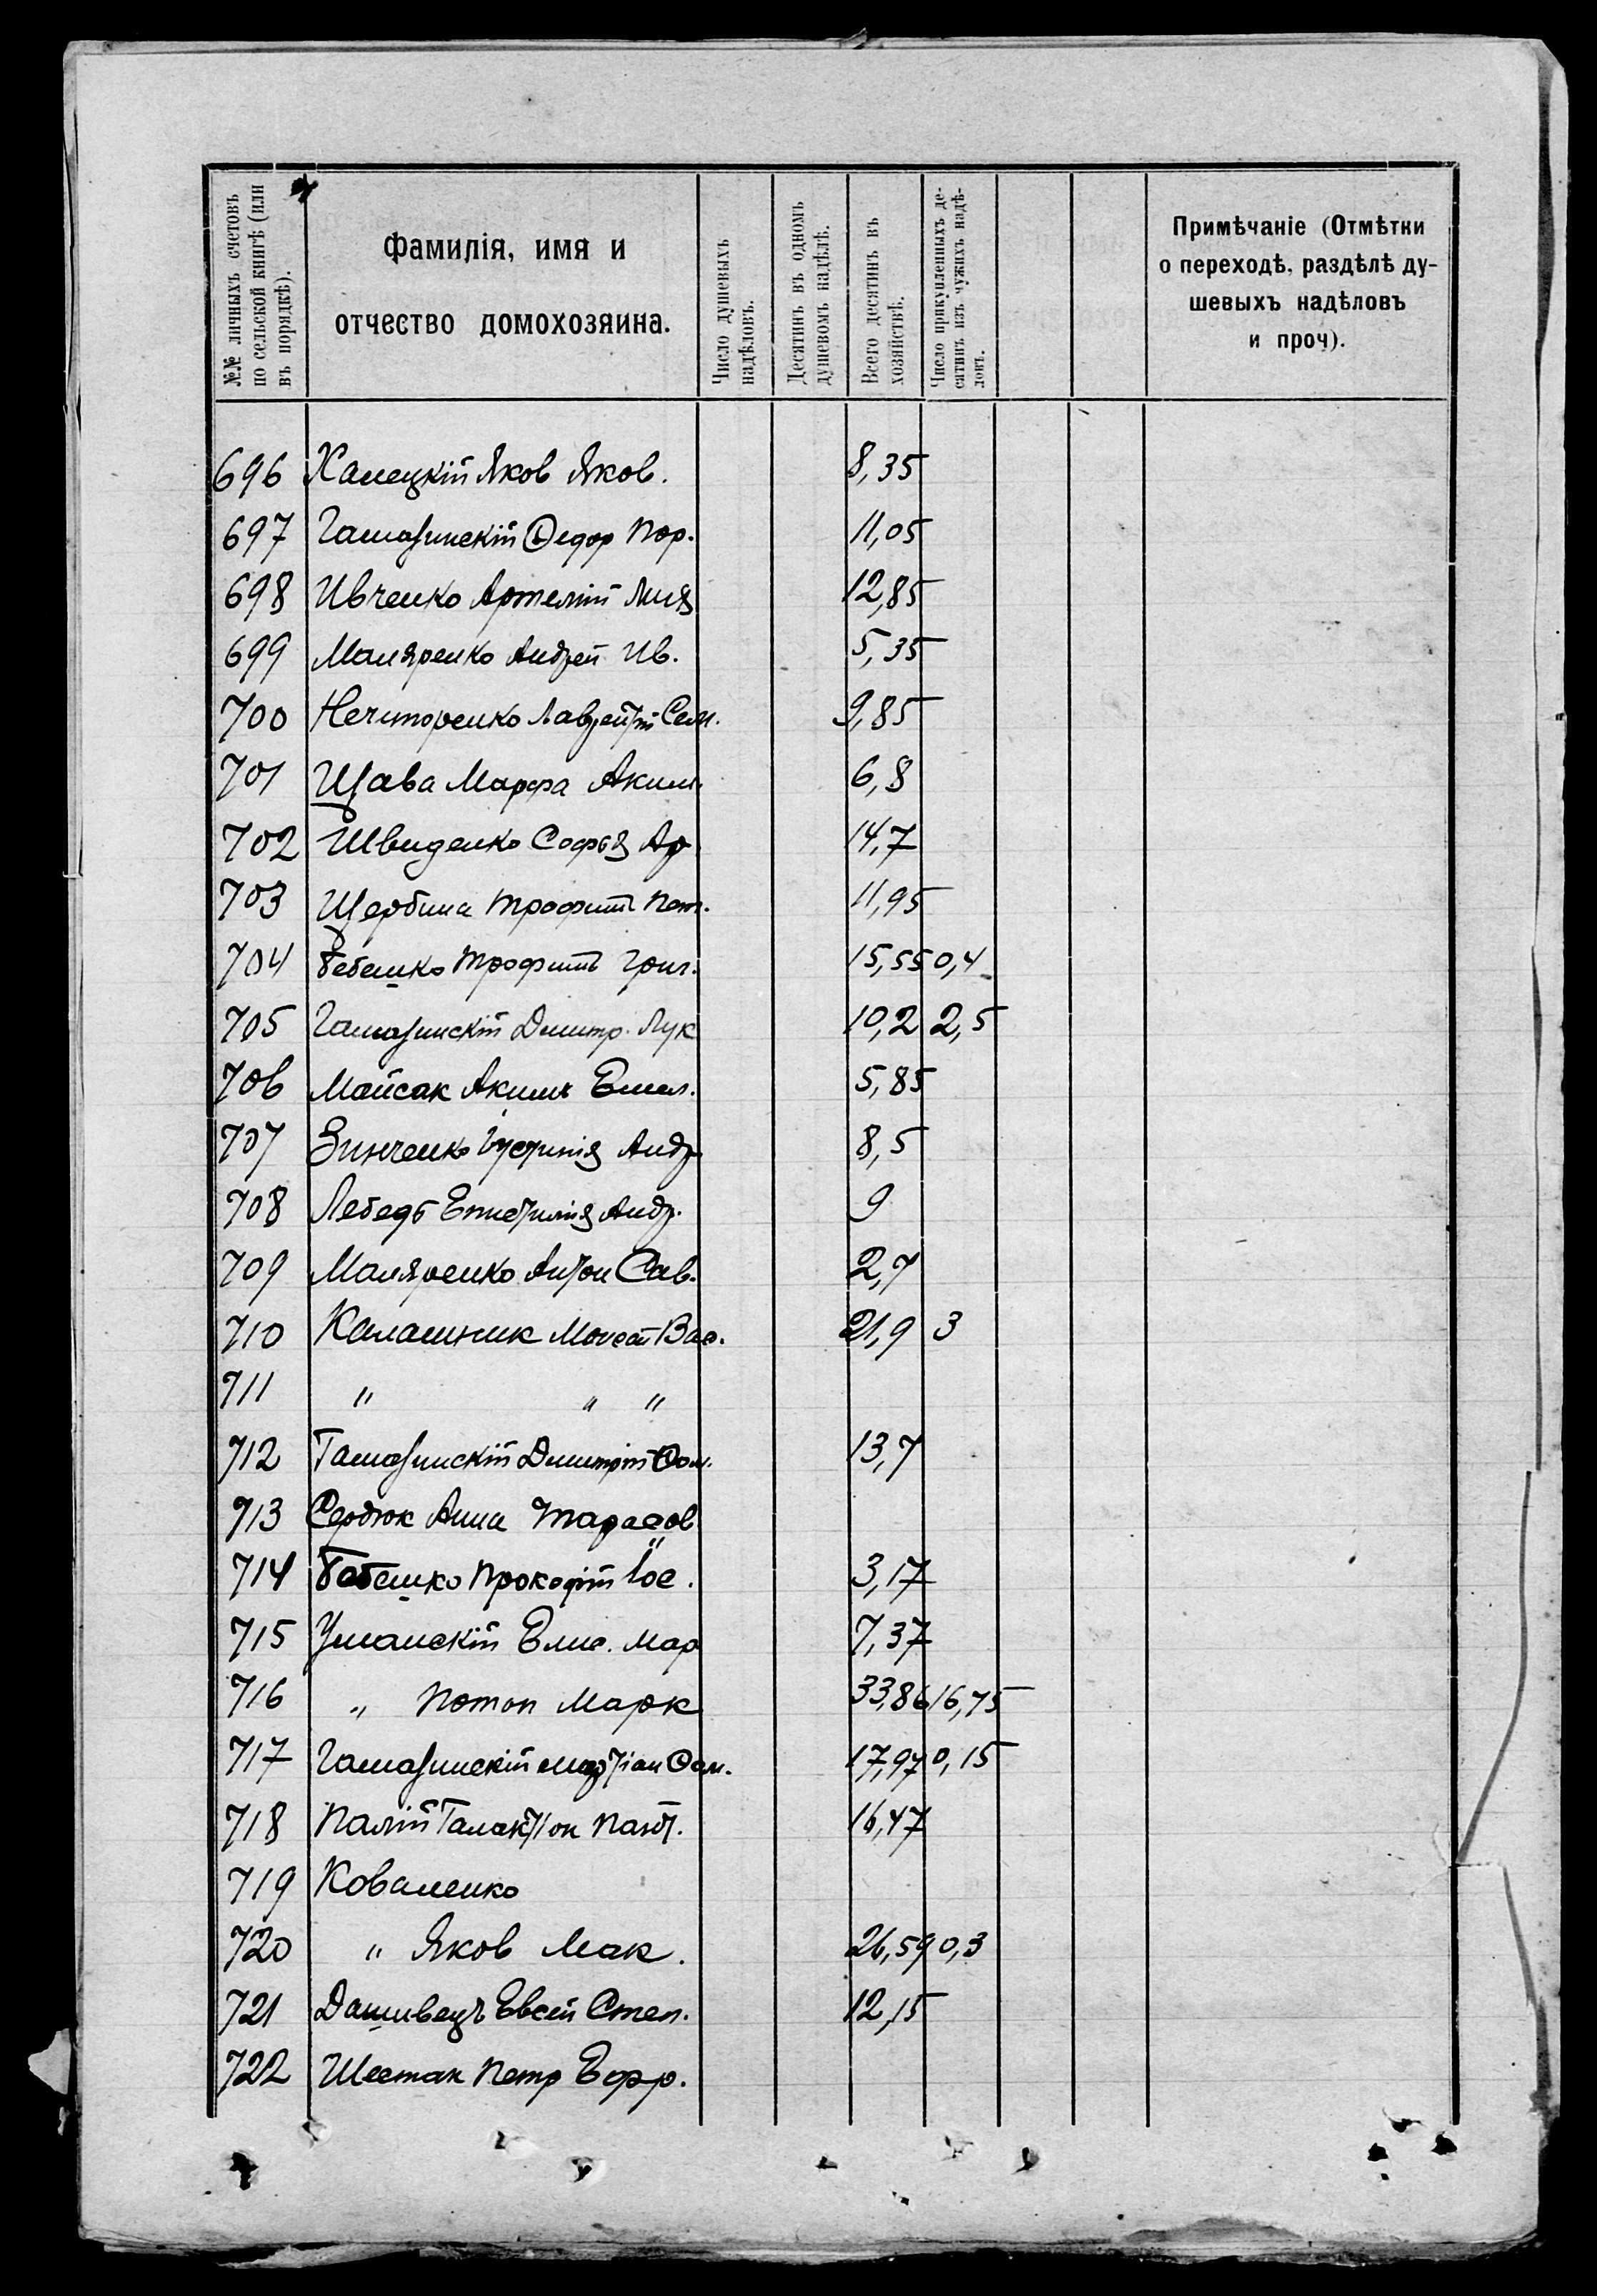 №№ личныхъ счетовъ по сельской книгѣ (или въ порядкѣ).
Фамилія, имя и отчество домохозяина.
Число душевыхъ надѣловъ.
Десятинъ въ одномъ душевомъ надѣлѣ.
Всего десятинъ въ хозяйствѣ.
Число прикупленныхъ десятинъ изъ чужихъ надѣловъ.
Примѣчаніе (Отмѣтки
о переходѣ, раздѣлѣ ду-
шевыхъ надѣловъ
и проч).
696 Халецкій Яков Яков. 8,35
697 Гамазинскій Ѳедор Пор. 11,05
698 Ивченко Артемій 12,85
699 Маляренко Андрей Ив. 5,35
700 Нечипоренко Лаврентій Сем. 9,85
701 Щава Марфа Аким. 6,8
702 Швиденко Софья Ар. 14,7
703 Щербина Трофим Пет. 11,95
704 Бебешко Трофимъ Григ. 15,55 0,4
705 Гамазинскій Димитр. Лук 10,2 2,5
706 Майсак Акимъ Емел. 5,85
707 Зинченко Іустинія Андр. 8,5
708 Лебедь Епистимія Андр. 9
709 Маляренко Антон Сав. 2,7
710 Калашник Моисей Вас. 21,9 3
711 " " "
712 Гамазинскій Димитрій Ѳом. 13,7
713 Сердюк Анна Тарасов
714 Бебешко Прокофій Іос. 3,17
715 Уманскій Елис. Мар 7,37
716 " Потап Марк 33,86 16,75
717 Гамазинскій Мартіан Ѳом. 17,97 0,15
718 Палій Галактіон Пант. 16,47
719 Коваленко
720 " Яков Мак. 26,59 0,3
721 Дашивецъ Евсей Степ. 12,15
722 Шестак Петр